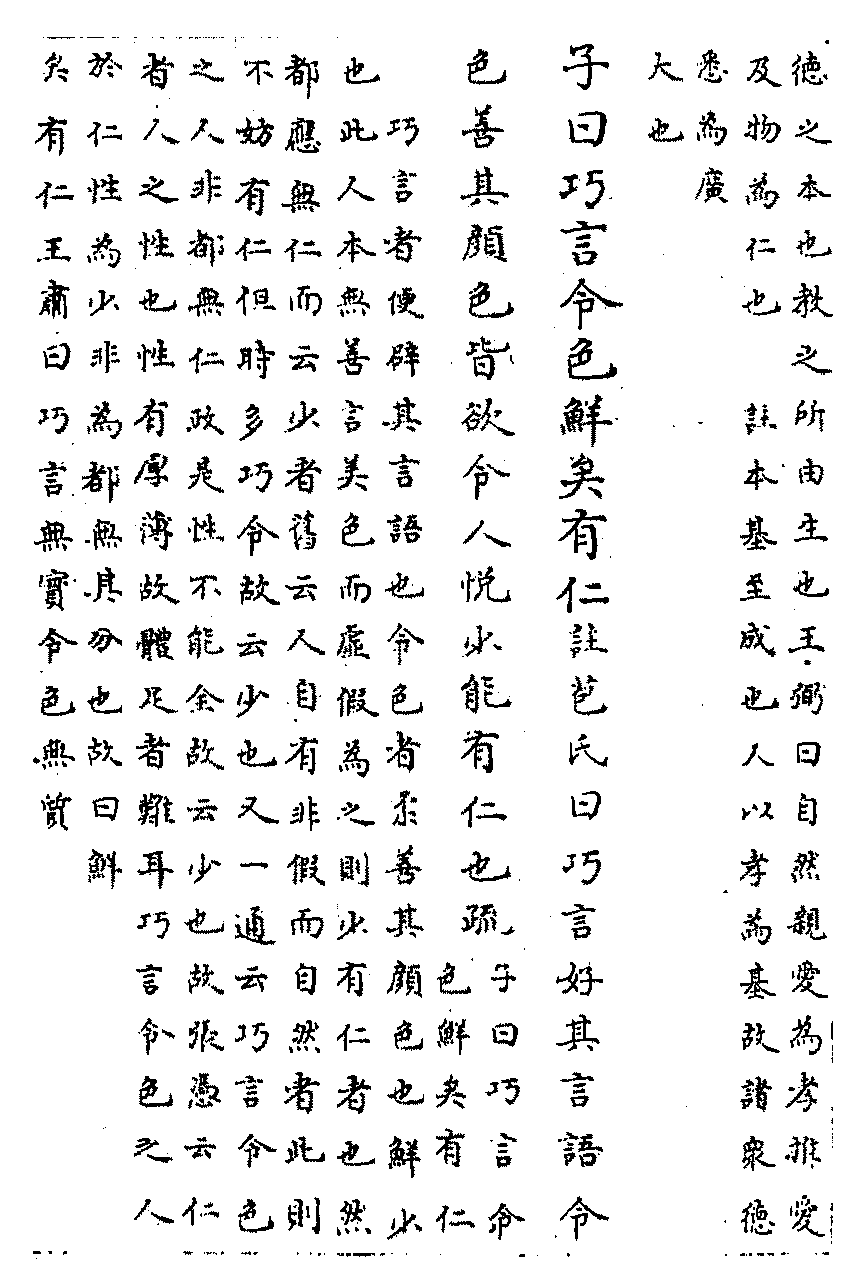 德之本也教之所由生也王弼曰自然親愛為孝推愛
及物為仁也 註本基至成也人以孝為基故諸衆德
悉為廣
大也
子曰巧言令色鮮矣有仁註苞氏曰巧言好其言語令
色善其顏色皆欲令人悅少能有仁也疏子曰巧言令
色鮮矣有仁
巧言者便辟其言語也令色者柔善其顏色也鮮少
也此人本無善言美色而虛假為之則少有仁者也然
都應無仁而云少者舊云人自有非假而自然者此則
不妨有仁但時多巧令故云少也又一通云巧言令色
之人非都無仁政是性不能全故云少也故張憑云仁
者人之性也性有厚薄故體足者難耳巧言令色之人
於仁性為少非為都無其分也故曰鮮
矣有仁王肅曰巧言無實令色無質